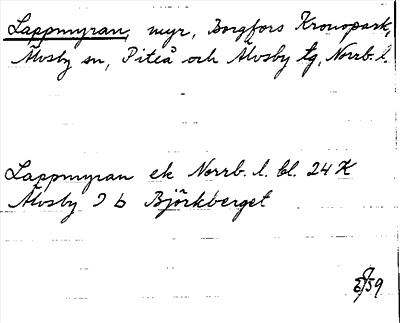 Lappmyran, myr, Borgfors Kronopark,
Älvsby sn, Piteå och Älvsby tg, Norrb. l.
Lappmyran ek Norrb. l. bl. 24 K
Älvsby 9 b Björkberget